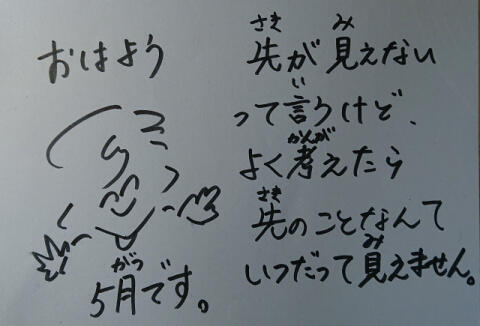 おはよう
さき み
先が見えない
い
って言うけど、
かんが
よく考えたら
さき
先のことなんて
み
いつだって見えません。
がつ
5月です。